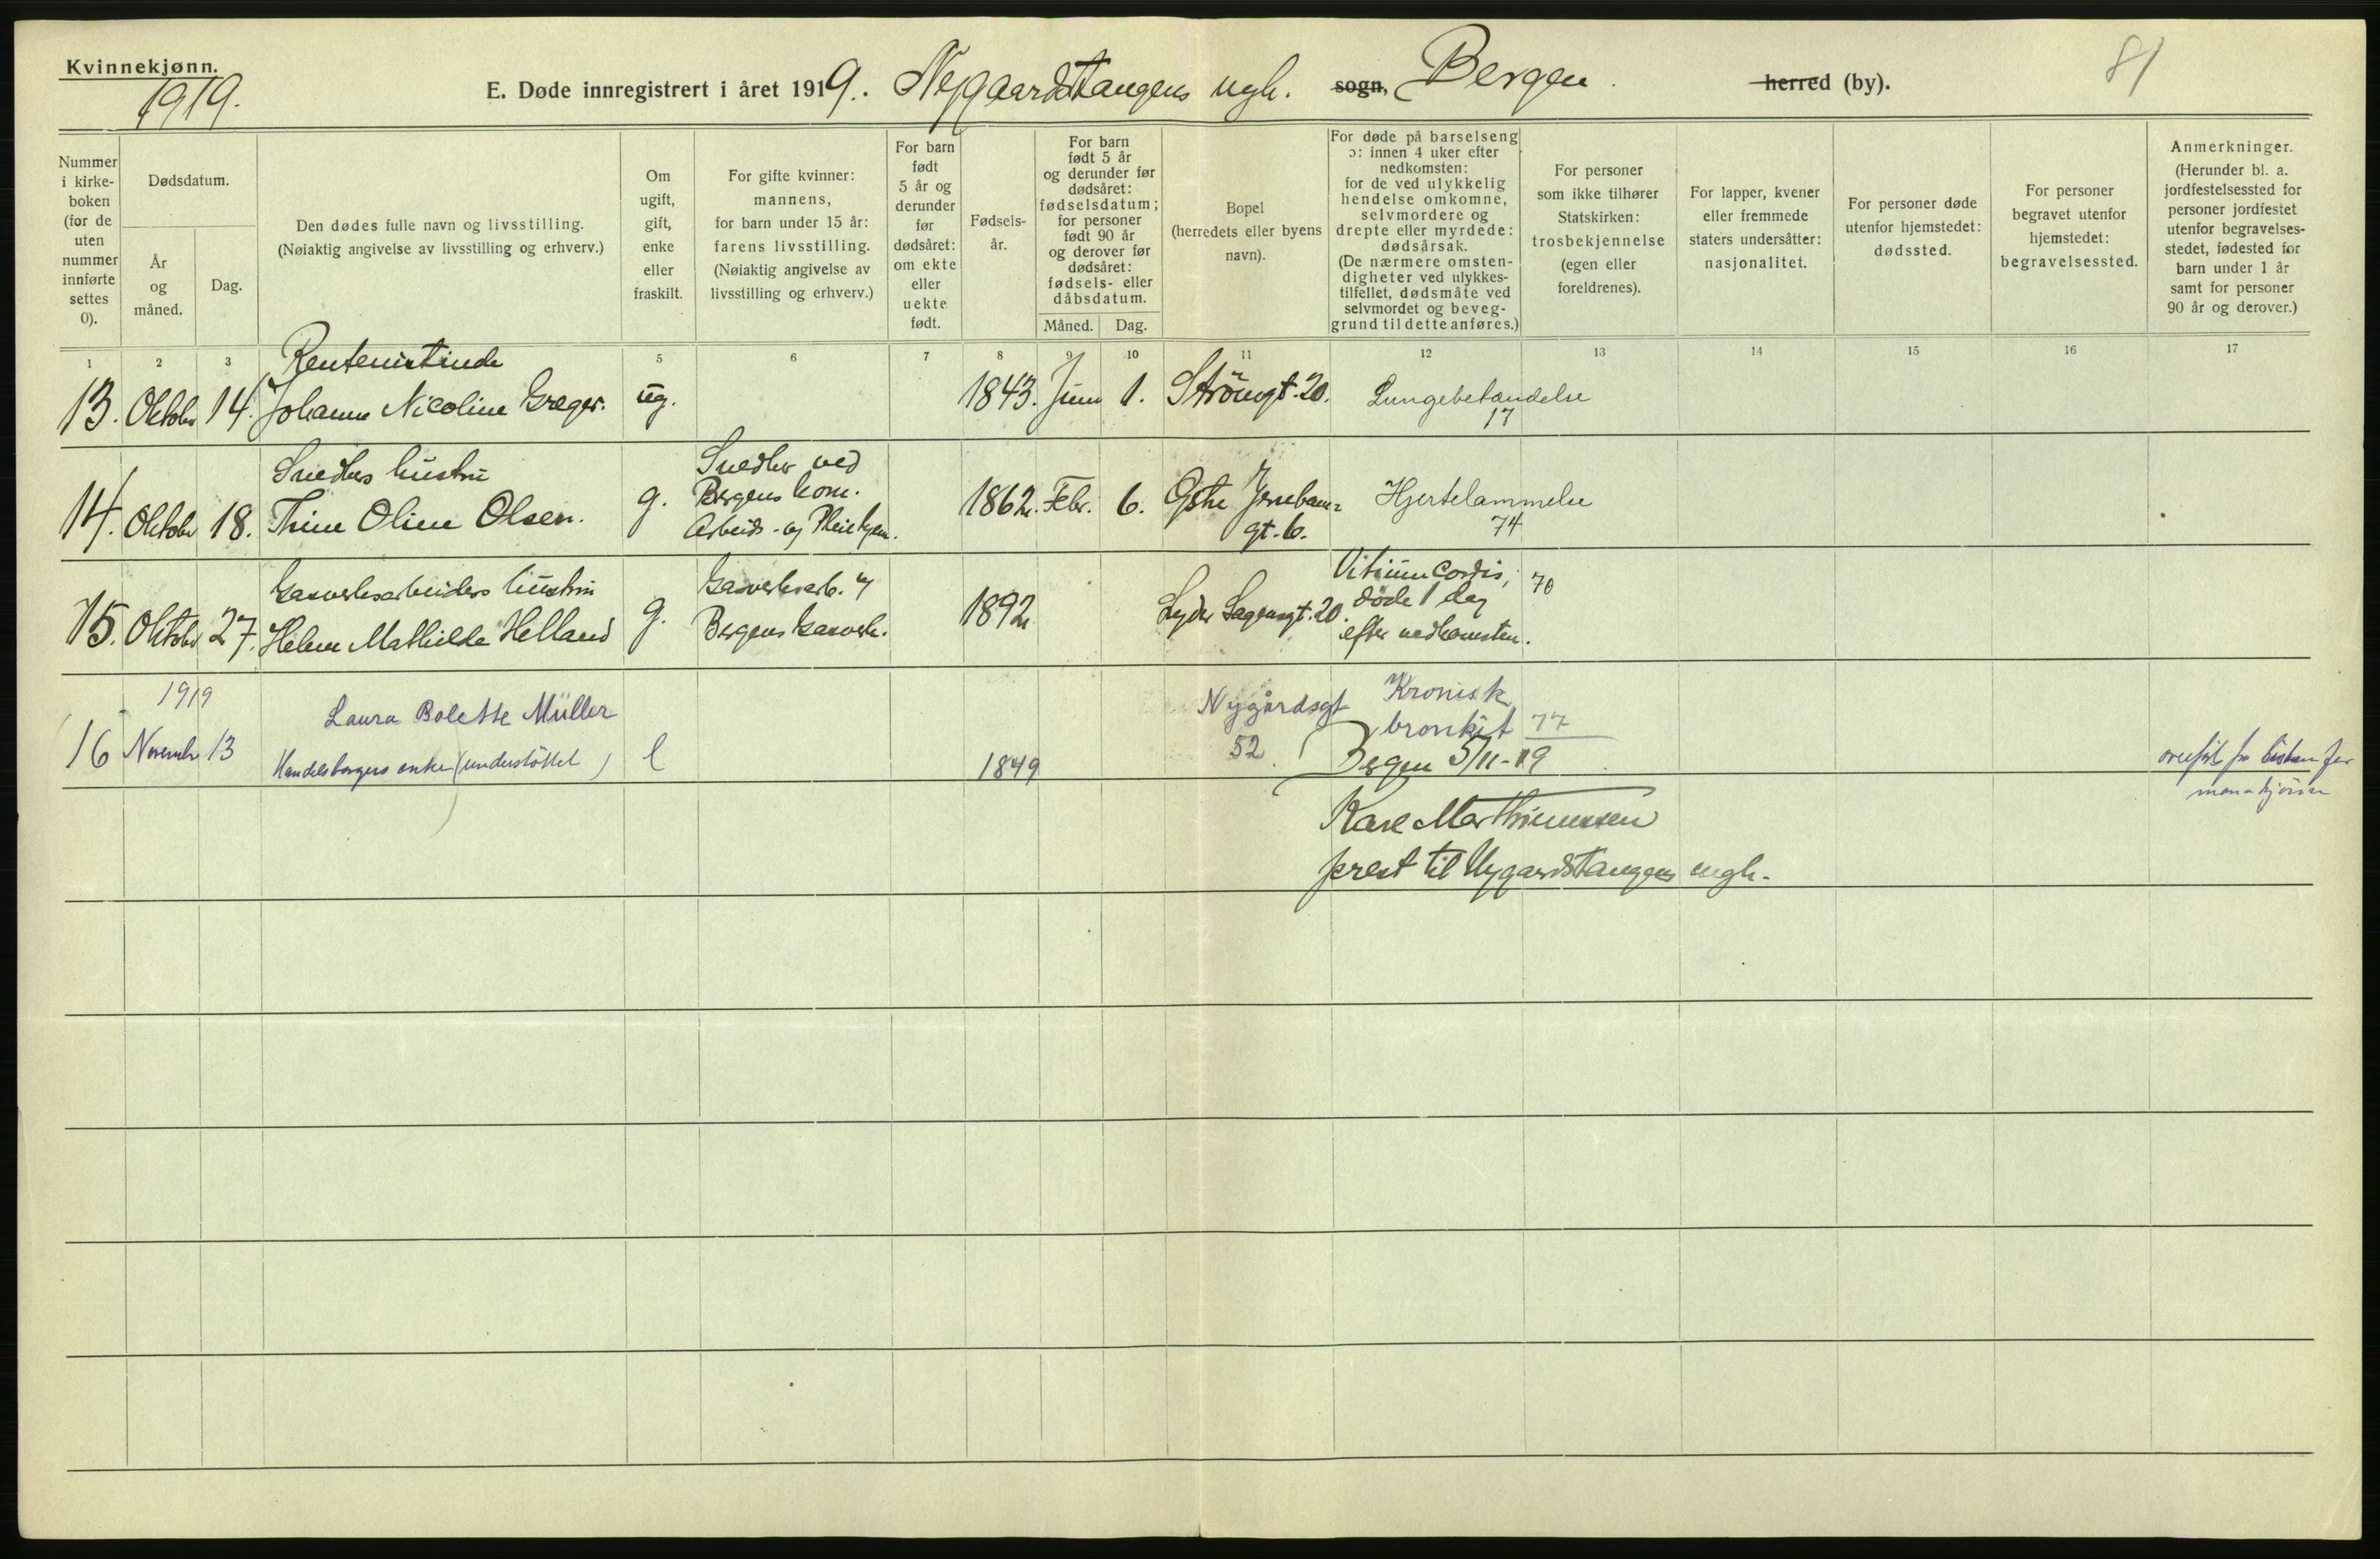 Kvinnekjønn.
1919.
E. Døde innregistrert i året 1919. Nygaardstangens ngk. sogn, Bergen. herred (by).
81
Nummer i kirke-boken (for de uten nummer innførte settes 0).
Dødsdatum.
År og måned.
Dag.
Den dødes fulle navn og livsstilling.
(Nøiaktig angivelse av livsstilling og erhverv.)
Om ugift, gift, enke eller fraskilt.
For gifte kvinner: mannens, for barn under 15 år: farens livsstilling. (Nøiaktig angivelse av livsstilling og erhverv.)
For barn født 5 år og derunder før dødsåret: om ekte eller uekte født.
Fødsels-år.
For barn født 5 år og derunder før dødsåret: fødselsdatum; for personer født 90 år og derover før dødsåret: fødsels- eller dåbsdatum.
Måned. Dag.
Bopel (herredets eller byens navn).
For døde på barselseng ɔ: innen 4 uker efter nedkomsten: for de ved ulykkelig hendelse omkomne, selvmordere og drepte eller myrdede: dødsårsak. (De nærmere omsten-digheter ved ulykkes-tilfellet, dødsmåte ved selvmordet og beveg-grund til dette anføres.)
For personer som ikke tilhører Statskirken: trosbekjennelse (egen eller foreldrenes).
For lapper, kvener eller fremmede staters undersåtter: nasjonalitet.
For personer døde utenfor hjemstedet: dødssted.
For personer begravet utenfor hjemstedet: begravelsessted.
Anmerkninger. (Herunder bl. a. jordfestelsessted for personer jordfestet utenfor begravelses-stedet, fødested for barn under 1 år samt for personer 90 år og derover.)
1 2 3 5 6 7 8 9 10 11 12 13 14 15 16 17
Rentenistinde
13. Oktober 14. Johanne Nicoline Greger. ug. 1843. Juni 1. Strömgt. 20. Lungebetændelse
17
Snedkers hustru
14. Oktober 18. Trine Oline Olsen. g.
Snedker ved
Bergens kom.
Arbeids- og Pleiehjem.
1862. Febr. 6. Østre Jernbane-
gt. 6.
Hjertelammelse
74
Gasverksarbeiders hustru
15. Oktober 27. Helene Mathilde Helland g.
Gasverksarb. v/
Bergens Gasverk.
1892. Lyder Sagensgt. 20.
Vitium Cordis, 70
døde 1 dag
efter nedkomsten.
1919
16 November 13
Laura Bolette Müller
Handelsborgers enke (understöttet) l
1849
Nygårdsgt
52.
Kronisk
bronkit 77
Bergen 5/11-19
mannskjönn
prest til Nygaardstangens ngk.